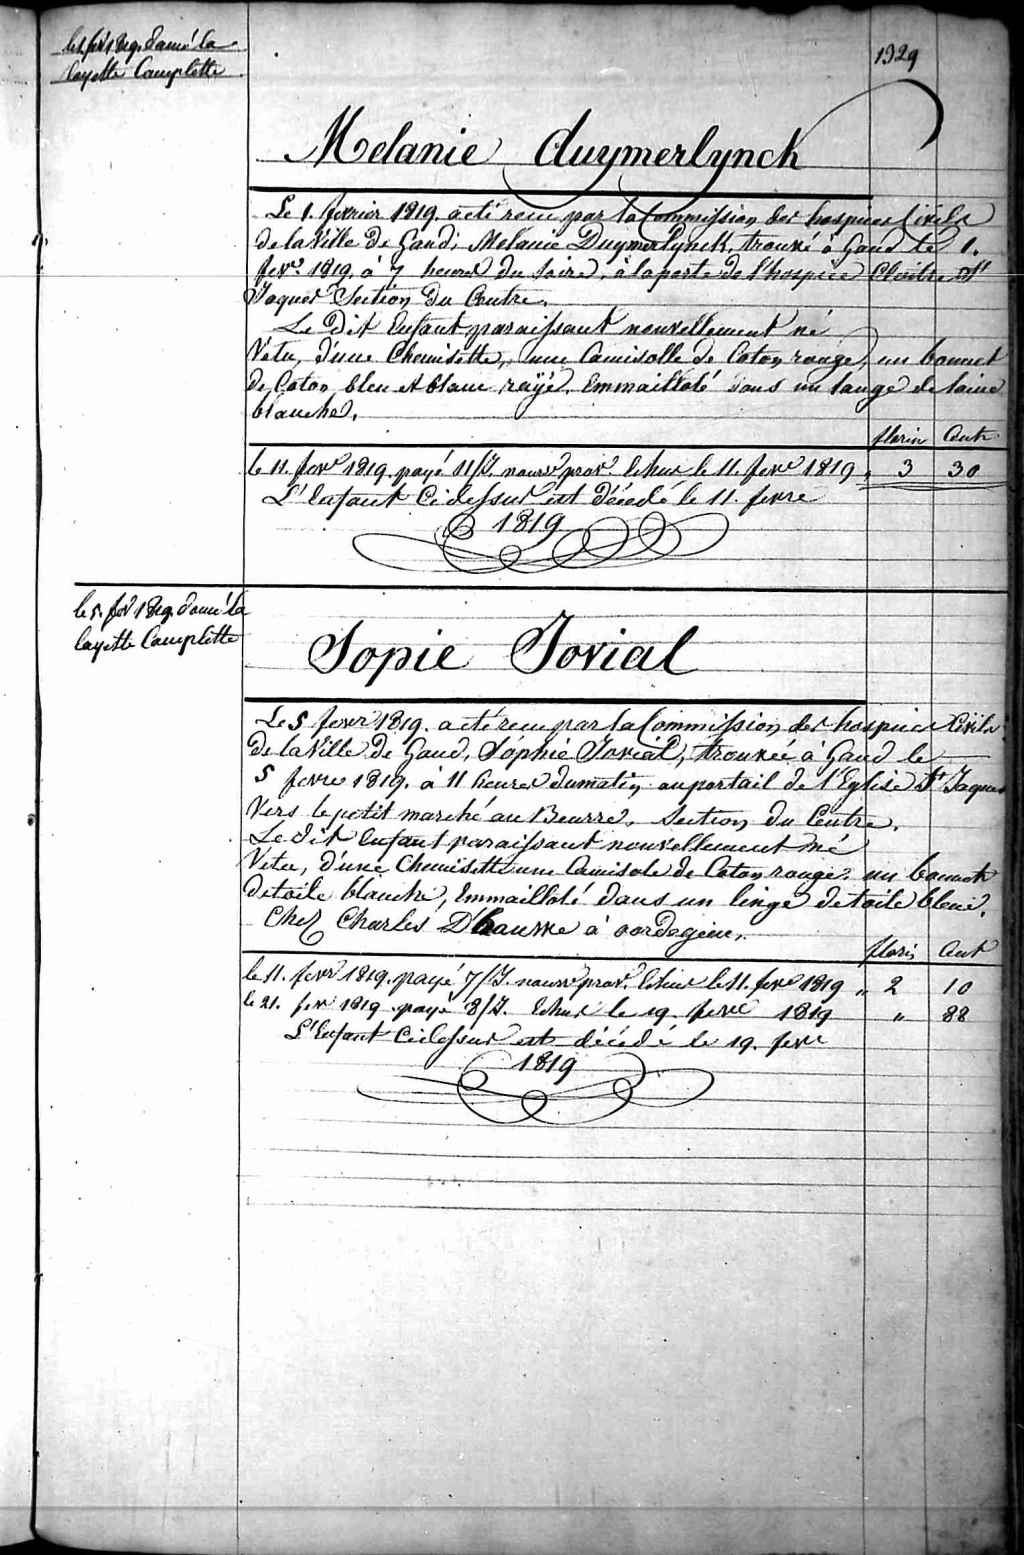 le 1. fevr 1819. donné la
layette Complette
1329
Melanie duymerlynck
Le 1. fevrier 1819. a eté recu par la Commission des hospices Civils
de la Ville de Gand, Melanie Duymerlynck, trouvé à Gand le 1.
fevr. 1819. à 7 heures du Soire, à la porte de l'hospice Cloitre St
Jaques Section du Centre.
Le dit Enfant paraissant nouvellement né
Vetu, d'une Chemisette, une Camisolle de Coton rouge, un bonnet
de Coton bleu et blanc rayé. Emmailloté dans un lange de laine
blanche.
florin Cents
le 11. fevre 1819. payé 11/J. nourr. prov. Echus le 11. fevre 1819 " 3 30
L'Enfant Cidessus est décédé le 11. fevre
1819
le 5. fevr 1819. donné la
layette Complette
Sopie Jovial
Le 5 fevr 1819. a eté recu par la Commission des hospices Civils
de la Ville de Gand, Sophie Jovial, trouvée à Gand le
5 fevre 1819. à 11 heures du matin au portail de l'Eglise St Jaques
Vers le petit marché au Beurre. Section du Centre.
Le dit Enfant paraissant nouvellement né
Vetu, d'une Chemisette une Camisole de Coton rouge. un bonnet
de toile blanche, Emmailloté dans un linge de toile bleue.
Chez Charles D'hauwe à oordegem.
floris Cent
le 11. fevr 1819. payé 7/J. nourr prov. Echus le 11. fevre 1819 " 2 10
le 21. fevr 1819 payé 8/J. Echus le 19. fevre 1819 " 88
L'Enfant Cidessus est décédé le 19. fevre
1819